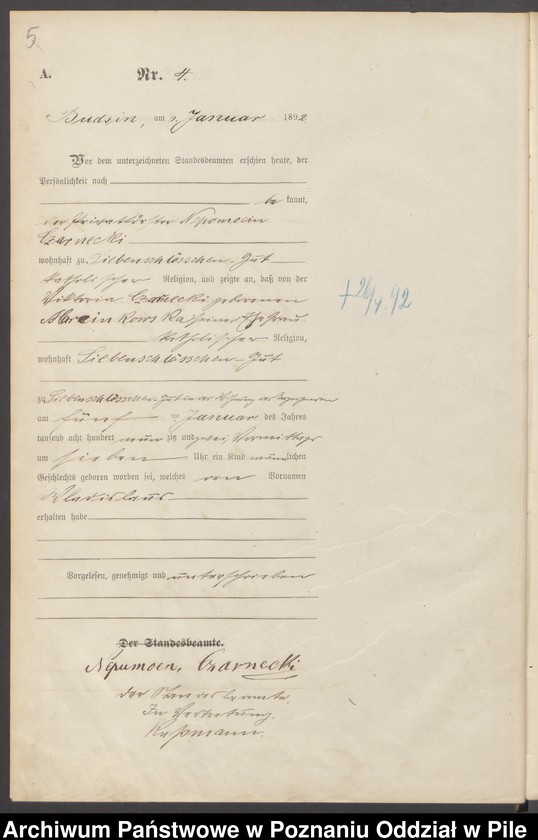 5
A. Nr. 4.
Budsin, am Januar 1892
Vor dem unterzeichneten Standesbeamten erschien heute, der
Persönlichkeit nach
be kannt,
der Nepomocin
Czarnecki
wohnhaft zu Liebenschlösschen-Gut
katholischer Religion, und zeigte an, daß von der
Viktoria Czarnecki geborenen
Marcinkowska seiner Ehefrau
katholischer Religion,
wohnhaft Liebenschlösschen-Gut
zu Gut in der Wohnung
am fünf ten Januar des Jahres
tausend acht hundert neun zig und zwei Vormittags
um sieben Uhr ein Kind männlichen
Geschlechts geboren worden sei, welches den Vornamen
Wladislaus
erhalten habe
Vorgelesen, genehmigt und unterschrieben
Der Standesbeamte.
Nepumoen, Czarnecki
der Standesbeamte.
In Vertretung.
Rußmann.
+ 26/4. 92
Archiwum Państwowe w Poznaniu Oddział w Pile